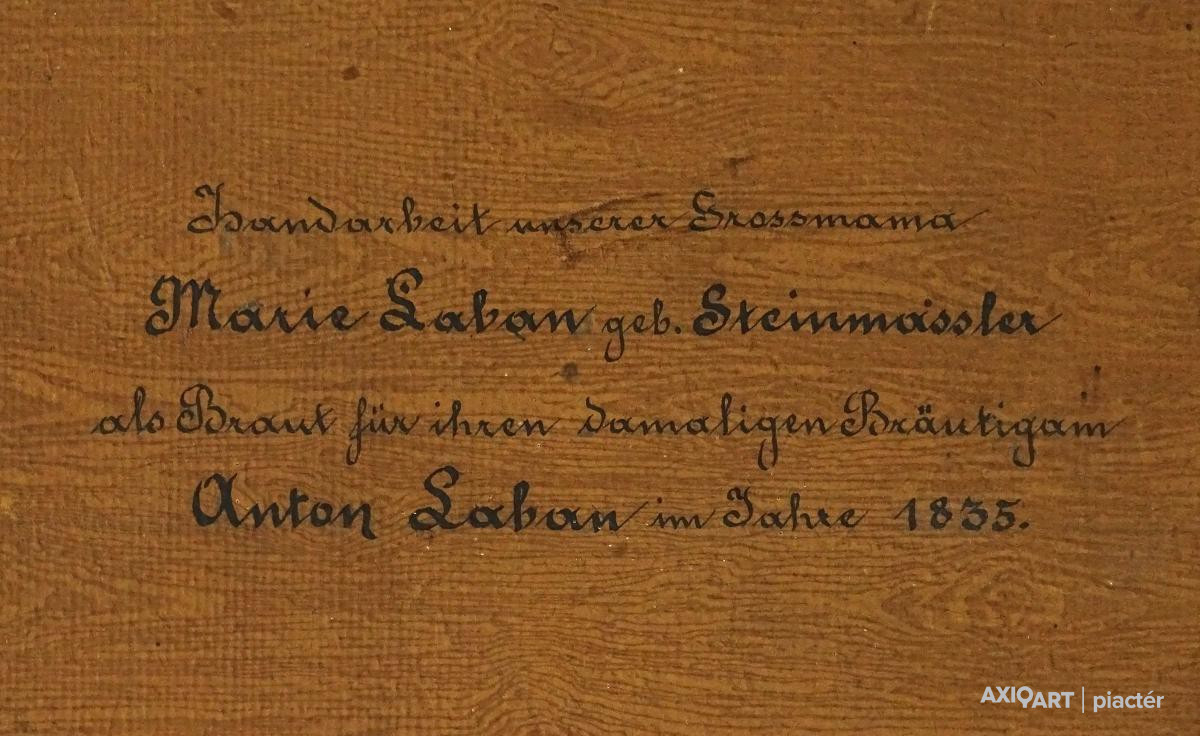 Handarbeit unserer Grossmama
Marie Laban geb. Steinmassler
als Braut für ihren damaligen Bräutigam
Anton Laban im Jahre 1835.
AXIOART | piactér